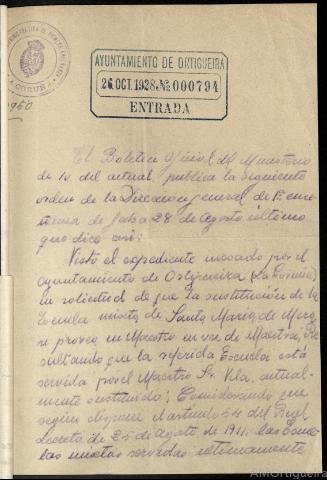 ADMINISTRATIVA DE PRIMERA ENSEÑANZA
CORUÑA
1950
AYUNTAMIENTO DE ORTIGUEIRA
26.OCT.1928.No 000794
ENTRADA
El Boletin Oficial del Ministerio
de 10 del actual publica la siguiente
orden de la Direccion general de 1ª ense-
ñanza de fecha 28 de agosto último
que dice asi:
Visto el expediente incoado por el
ayuntamiento de Ortigueira (La Coruña)
en solicitud de que la sustitución de la
Escuela mixta de Santa Maria de Mera
se provea en Maestro en vez de Maestra; Re-
sultando que la referida Escuela está
servida por el Maestro Sr. Vila, actual-
mente sustituido; Considerando que
según dispone el articulo 54 del Real
Decreto de 25 de agosto de 1911, las Escue-
las mixtas servidas interinamente
AMOrtigueira